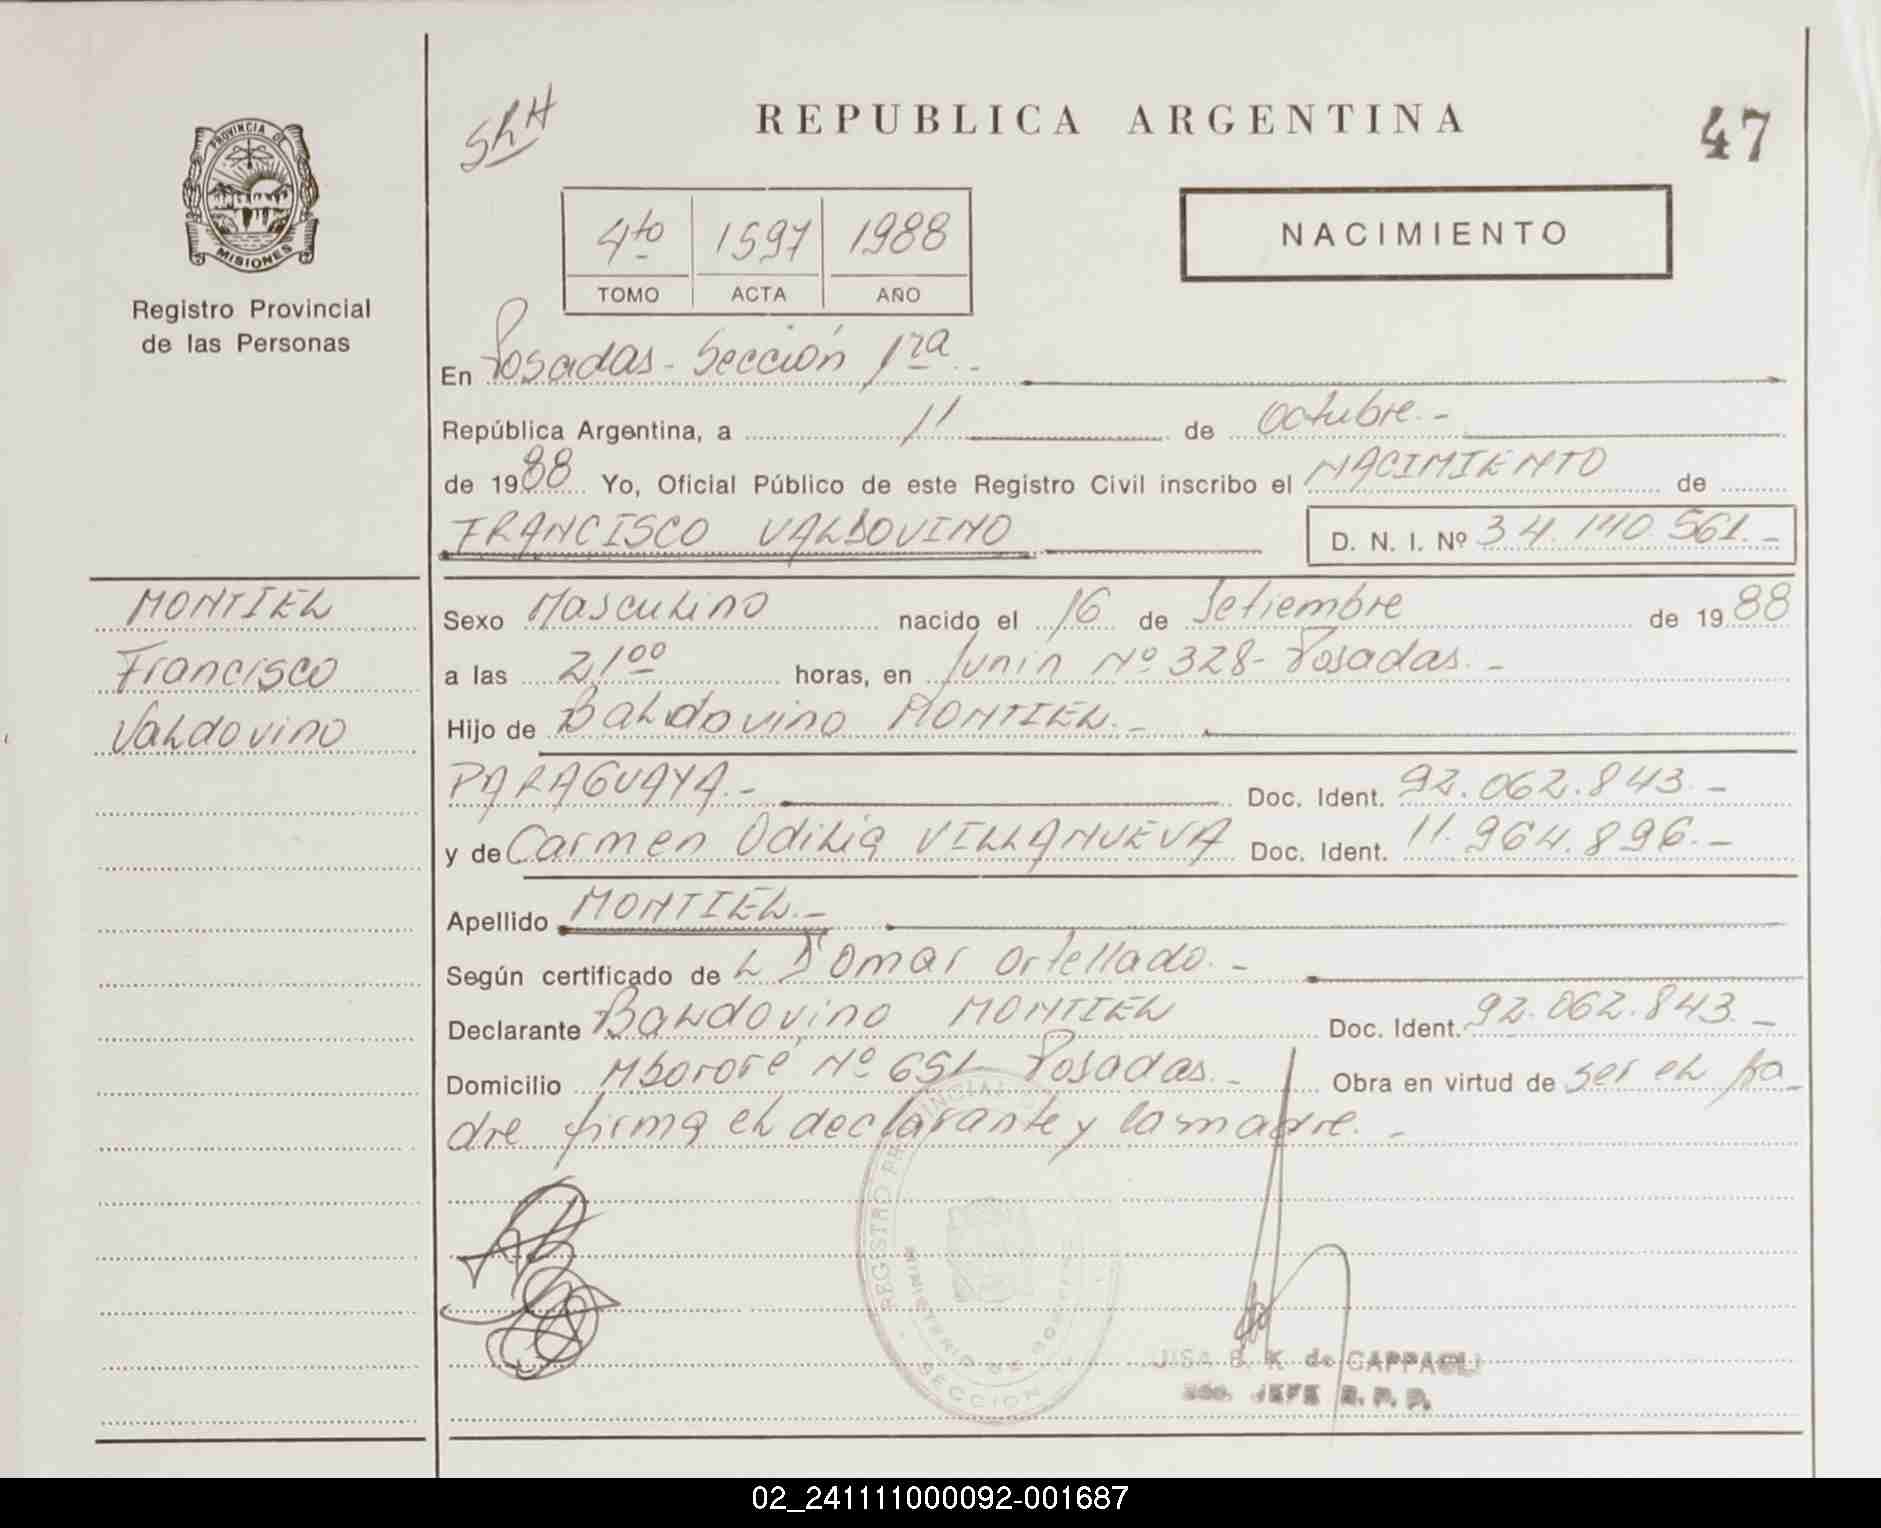 ShH
REPUBLICA ARGENTINA
47
PROVINCIA DE
MISIONES
Registro Provincial
de las Personas
4to 1597 1988
TOMO ACTA AÑO
NACIMIENTO
En Posadas - Sección 1ra.-
República Argentina, a 11 de Octubre.-
de 1988 Yo, Oficial Público de este Registro Civil inscribo el NACIMIENTO de
FRANCISCO VALDOVINO D. N. I. Nº 34.140.561.-
MONTIEL
Francisco
Valdovino
Sexo Masculino nacido el 16 de Setiembre de 1988
a las 21,00 horas, en Junín Nº 328- Posadas.-
Hijo de Baldovino MONTIEL.-
PARAGUAYA.- Doc. Ident. 92.062.843.-
y de Carmen Odilia VILLANUEVA Doc. Ident. 11.964.896.-
Apellido MONTIEL.-
Según certificado de Omar Ortellado.-
Declarante Baldovino MONTIEL Doc. Ident. 92.062.843.-
Domicilio Mbororé Nº Posadas.- Obra en virtud de ser el pa-
dre firma el declarante y la madre.-
REGISTRO PROVINCIAL
MINISTERIO DE
SECCION
B. K. de CAPPAGLI
JEFE R. P. P.
02_241111000092-001687